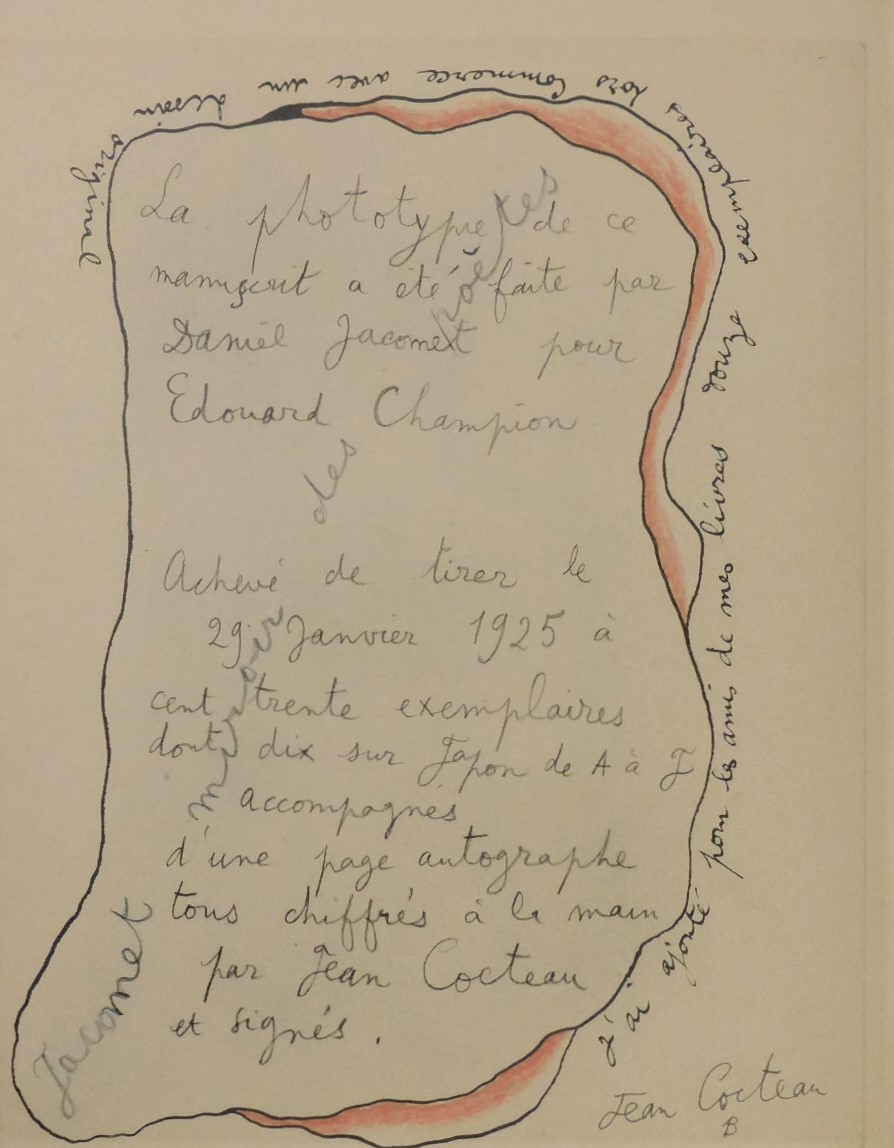 La phototypie de ce
manuscrit a été faite par
Daniel Jacomet pour
Edouard Champion
Achevé de tirer le
29 Janvier 1925 à
cent trente exemplaires
dont dix sur Japon de A à J
accompagnés
d'une page autographe
tous chiffrés à la main
par Jean Cocteau
et signés.
Jacomet miroir des poètes
J'ai ajouté pour les amis de mes livres douze exemplaires hors commerce avec un dessin original
Jean Cocteau
B